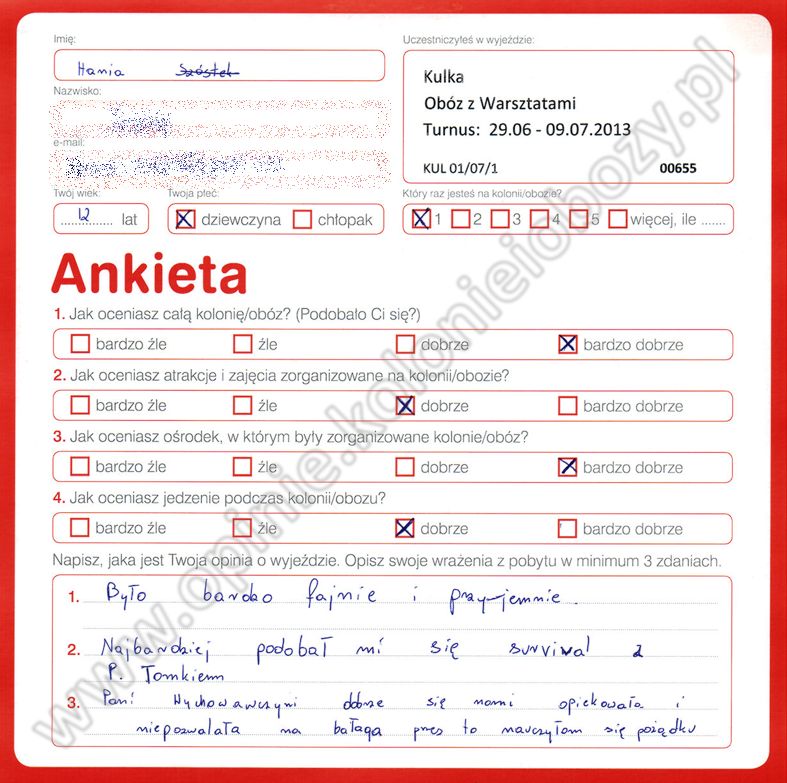 Imię:
Hania Szóstek
Uczestniczyłeś w wyjeździe:
Kulka
Obóz z Warsztatami
Turnus: 29.06 - 09.07.2013
KUL 01/07/1 00655
Nazwisko:
e-mail:
Twój wiek:
12 lat
Twoja płeć:
dziewczyna chłopak
Który raz jesteś na kolonii/obozie?
1 2 3 4 5 więcej, ile .......
Ankieta
1. Jak oceniasz całą kolonię/obóz? (Podobało Ci się?)
bardzo źle źle dobrze bardzo dobrze
2. Jak oceniasz atrakcje i zajęcia zorganizowane na kolonii/obozie?
bardzo źle źle dobrze bardzo dobrze
3. Jak oceniasz ośrodek, w którym były zorganizowane kolonie/obóz?
bardzo źle źle dobrze bardzo dobrze
4. Jak oceniasz jedzenie podczas kolonii/obozu?
bardzo źle źle dobrze bardzo dobrze
Napisz, jaka jest Twoja opinia o wyjeździe. Opisz swoje wrażenia z pobytu w minimum 3 zdaniach.
1. Było bardzo fajnie i przyjemnie.
2. Najbardziej podobał mi się survival z
P. Tomkiem
3. Pani Wychowawczyni dobrze się nami opiekowała i
niepozwalała na bałaga przes to nauczyłam się poządku
www.opinie.kolonieiobozy.pl